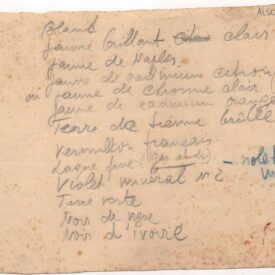 ALGO
Blanc
Jaune brillant clair
Jaune de Naples
Jaune de cadmium citron
ou jaune de chrome clair
Jaune de cadmium orange
Terre de Sienne brûlée
Vermillon français
Laque fine
Violet minéral n° 2
Terre verte
Noir de vigne
Noir d'ivoire